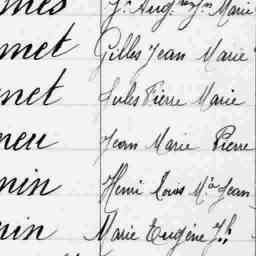 mes Jn Aug. Marie
met Gilles Jean Marie
met Jules Pierre Marie
neu Jean Marie Pierre
nin Henri Louis Mie Jean
nin Marie Eugène Jh